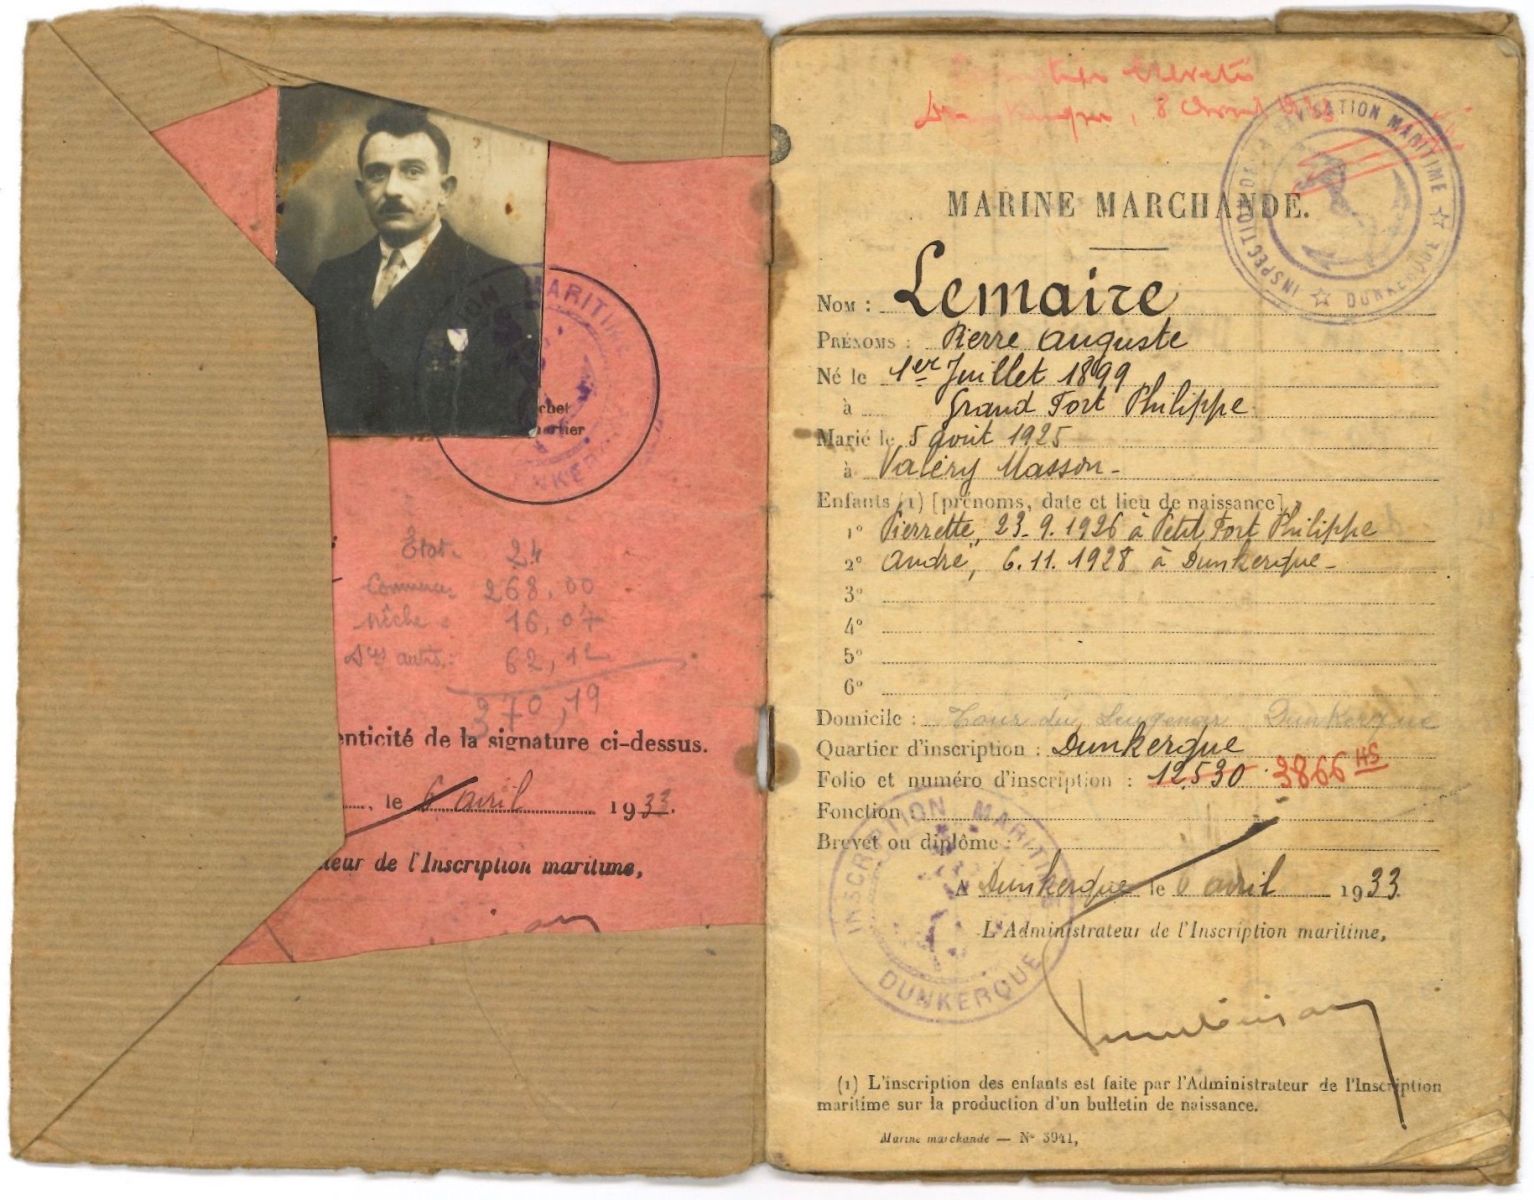 MARITIME
DUNKERQUE
chet
artier
État. 24
Commerce 268,00
Pêche 16,07
62,12
370,19
enticité de la signature ci-dessus.
, le 6 avril 1933.
teur de l'Inscription maritime,
Dunkerque, 8 Avril 1933
INSPECTION DE LA NAVIGATION MARITIME
DUNKERQUE
MARINE MARCHANDE.
Nom : Lemaire
Prénoms : Pierre Auguste
Né le 1er Juillet 1899
à Grand Fort Philippe
Marié le 5 août 1925
à Valéry Masson -
Enfants (1) [prénoms, date et lieu de naissance]
1° Pierrette, 23-9.1926 à Petit Fort Philippe
2° André, 6.11.1928 à Dunkerque -
3°
4°
5°
6°
Domicile : Dunkerque
Quartier d'inscription : Dunkerque
Folio et numéro d'inscription : 12.530 3866 HS
Fonction
Brevet ou diplôme :
A Dunkerque le 6 avril 1933.
L'Administrateur de l'Inscription maritime,
INSCRIPTION MARITIME
DUNKERQUE
(1) L'inscription des enfants est faite par l'Administrateur de l'Inscription
maritime sur la production d'un bulletin de naissance.
Marine marchande — N° 3941,